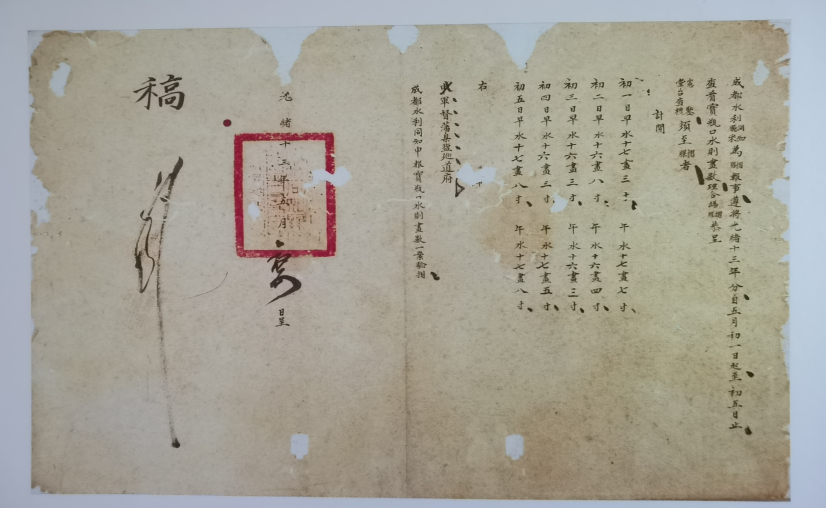 成都水利同知為摺報事遵將光緒十三年分自五月初一日起至初五日止
查看寶瓶口水則畫數理合繕摺恭呈
憲臺查核須至摺者
計開
初一日早水十七畫三寸 午水十七畫七寸
初二日早水十六畫八寸 午水十六畫四寸
初三日早水十六畫三寸 午水十六畫三寸
初四日早水十六畫三寸 午水十七畫五寸
初五日早水十七畫八寸 午水十七畫八寸
右
軍督藩臬鹽巡道府
成都水利同知申報寶瓶口水則畫數一案驗摺
光緒十三年 月 日呈
稿